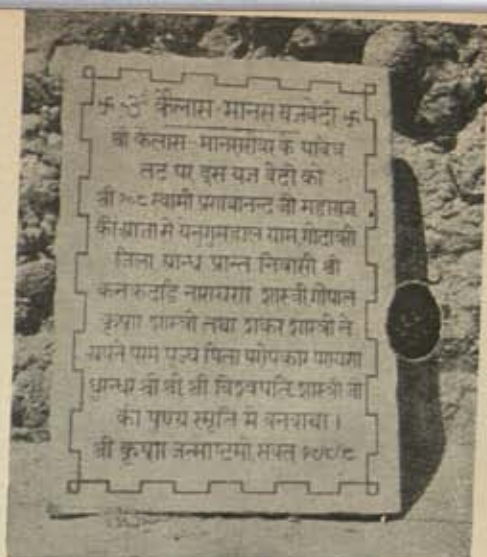 卐 ॐ कैलास-मानस यज्ञवेदी 卐
श्री कैलास-मानसरोवर के पवित्र
तट पर इस यज्ञ वेदी को
श्री १०८ स्वामी प्रणवानन्द जी महाराज
की आज्ञा से येनुगुमहाल ग्राम, गोदावरी
जिला आन्ध्र प्रान्त निवासी श्री
कनकदण्डि नारायण शास्त्री, गोपाल
कृष्ण शास्त्री तथा शंकर शास्त्री ने
अपने परम पूज्य पिता परोपकार परायण
धुरन्धर श्री श्री श्री विश्वपति शास्त्री जी
की पुण्य स्मृति में बनवाया ।
श्री कृष्ण जन्माष्टमी, संवत्